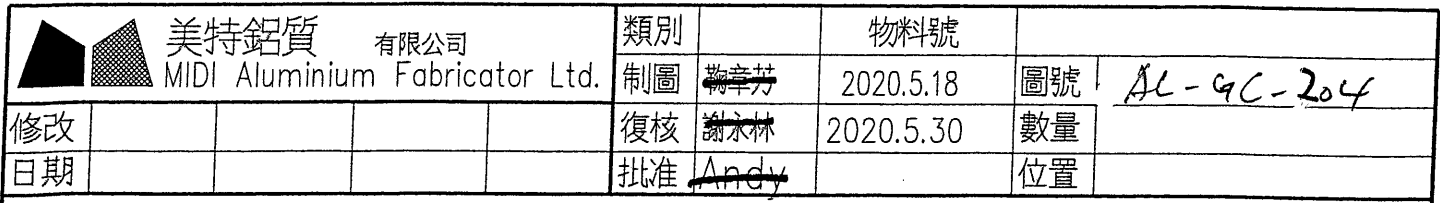 美特鋁質 有限公司
MIDI Aluminium Fabricator Ltd.
類別 物料號
制圖 鞠章芳 2020.5.18 圖號 AL-GC-204
修改 復核 謝永林 2020.5.30 數量
日期 批准 Andy 位置